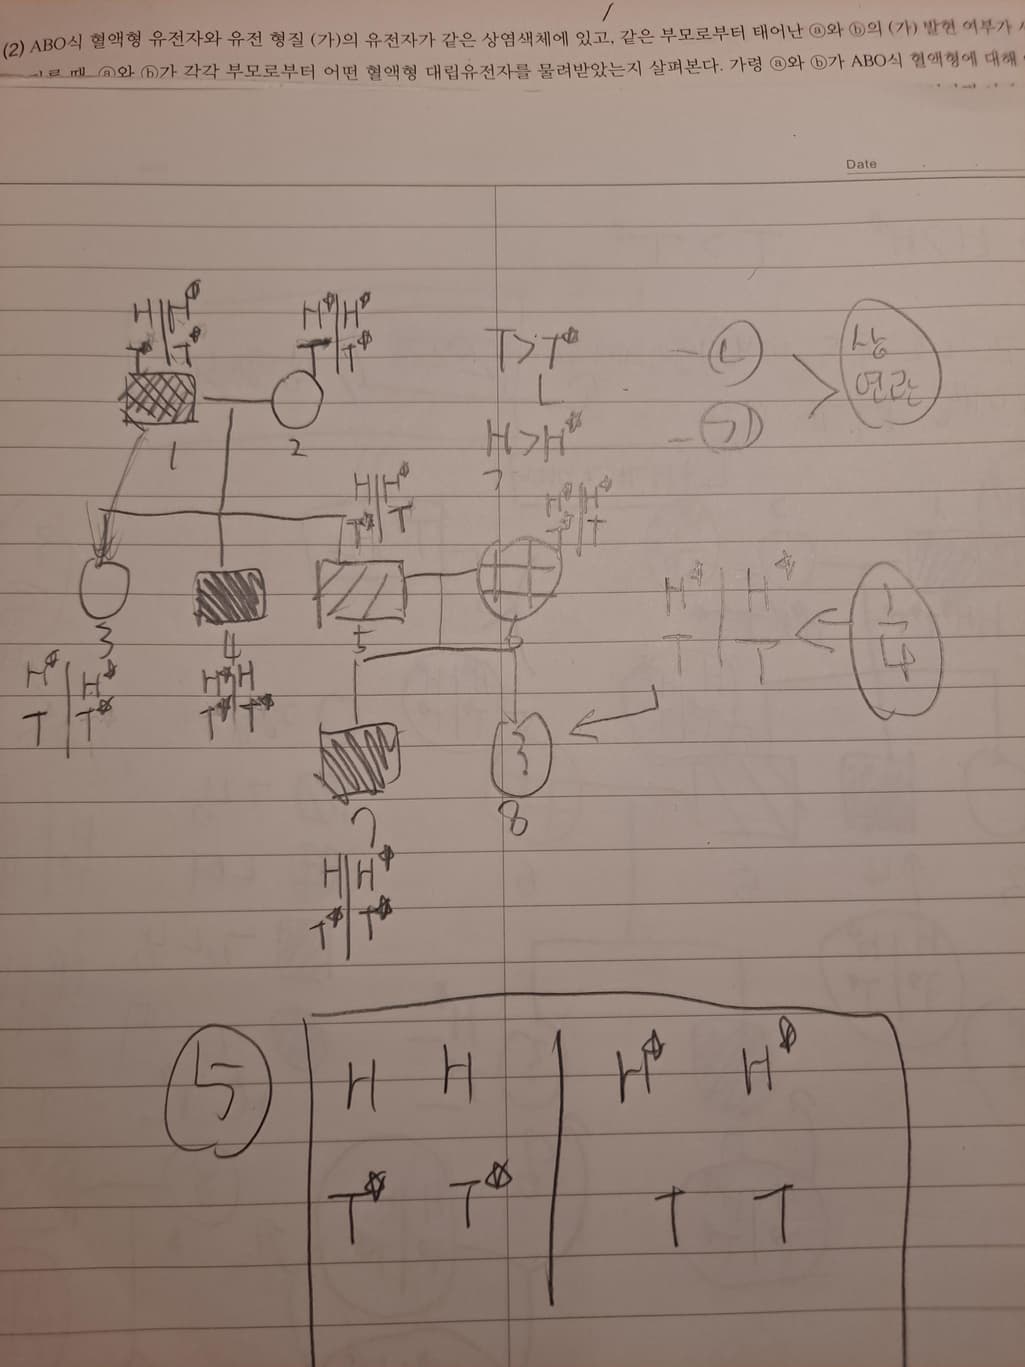 (2) ABO식 혈액형 유전자와 유전 형질 (가)의 유전자가 같은 상염색체에 있고, 같은 부모로부터 태어난 ⓐ와 ⓑ의 (가) 발현 여부가
때, ⓐ와 ⓑ가 각각 부모로부터 어떤 혈액형 대립유전자를 물려받았는지 살펴본다. 가령 ⓐ와 ⓑ가 ABO식 혈액형에 대해
Date
H | H*
T* | T*
1
H* | H*
T | T*
2
T > T*
ㄴ
H > H*
ㄱ
- ㄴ
- ㄱ
상
연관
H | H*
T* | T
5
H* | H*
T* | T
6
3
H* | H*
T | T*
4
H* | H
T* | T*
H* | H*
T | T
1/4
7
H | H*
T* | T*
?
8
5
H H | H* H*
T* T* | T T